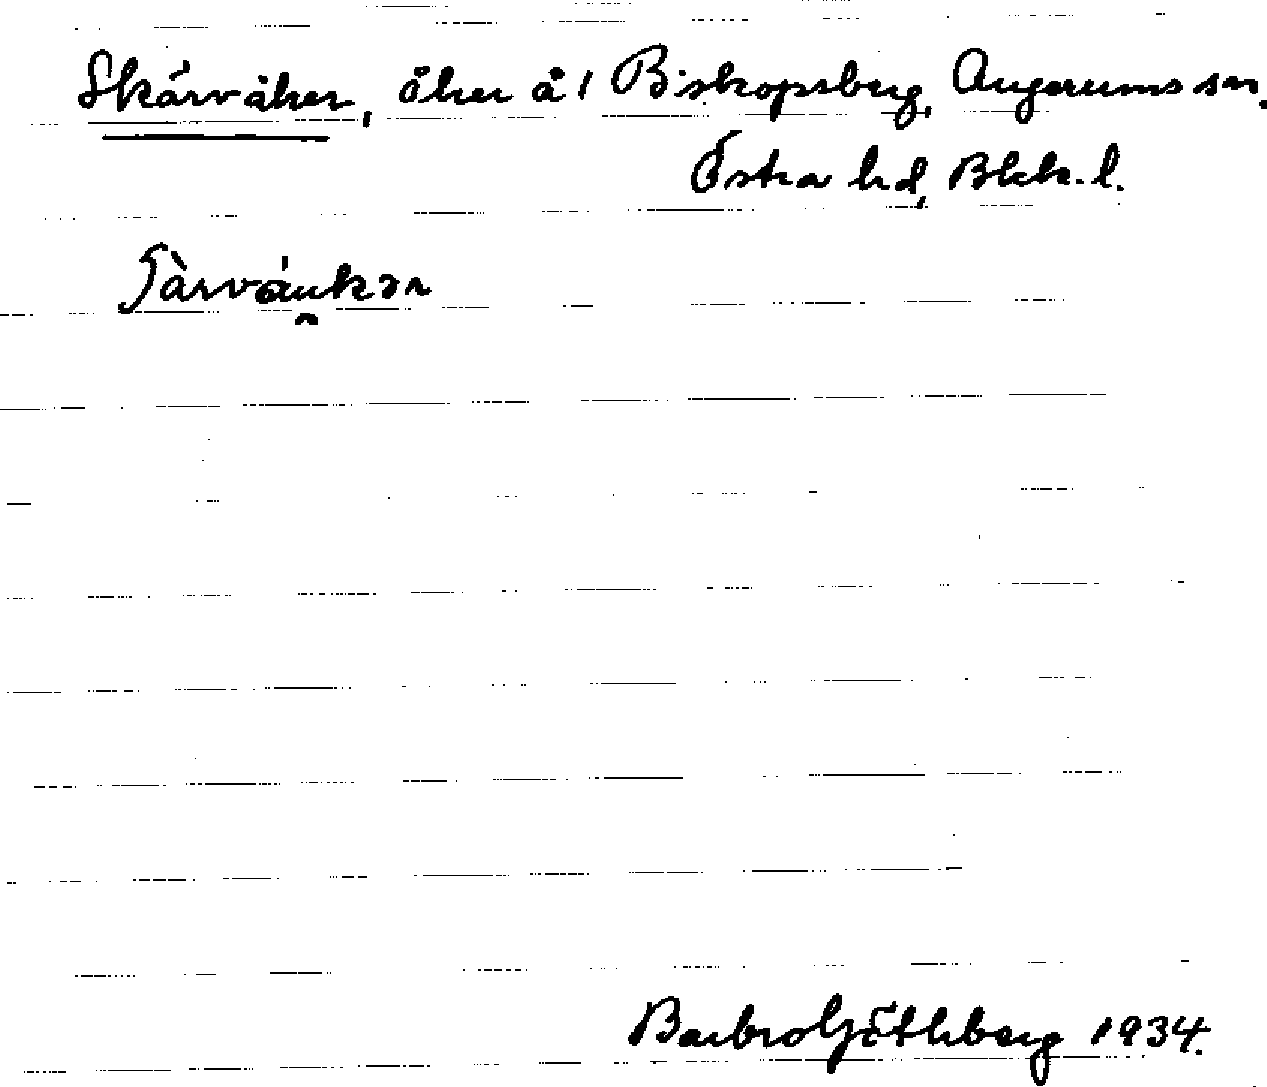 Skärvåker, åker å 1 Biskopsberg, Augerums sn,
Östra hd, Blek. l.
ʃàrváu̯kər
Barbro Götlberg 1934.